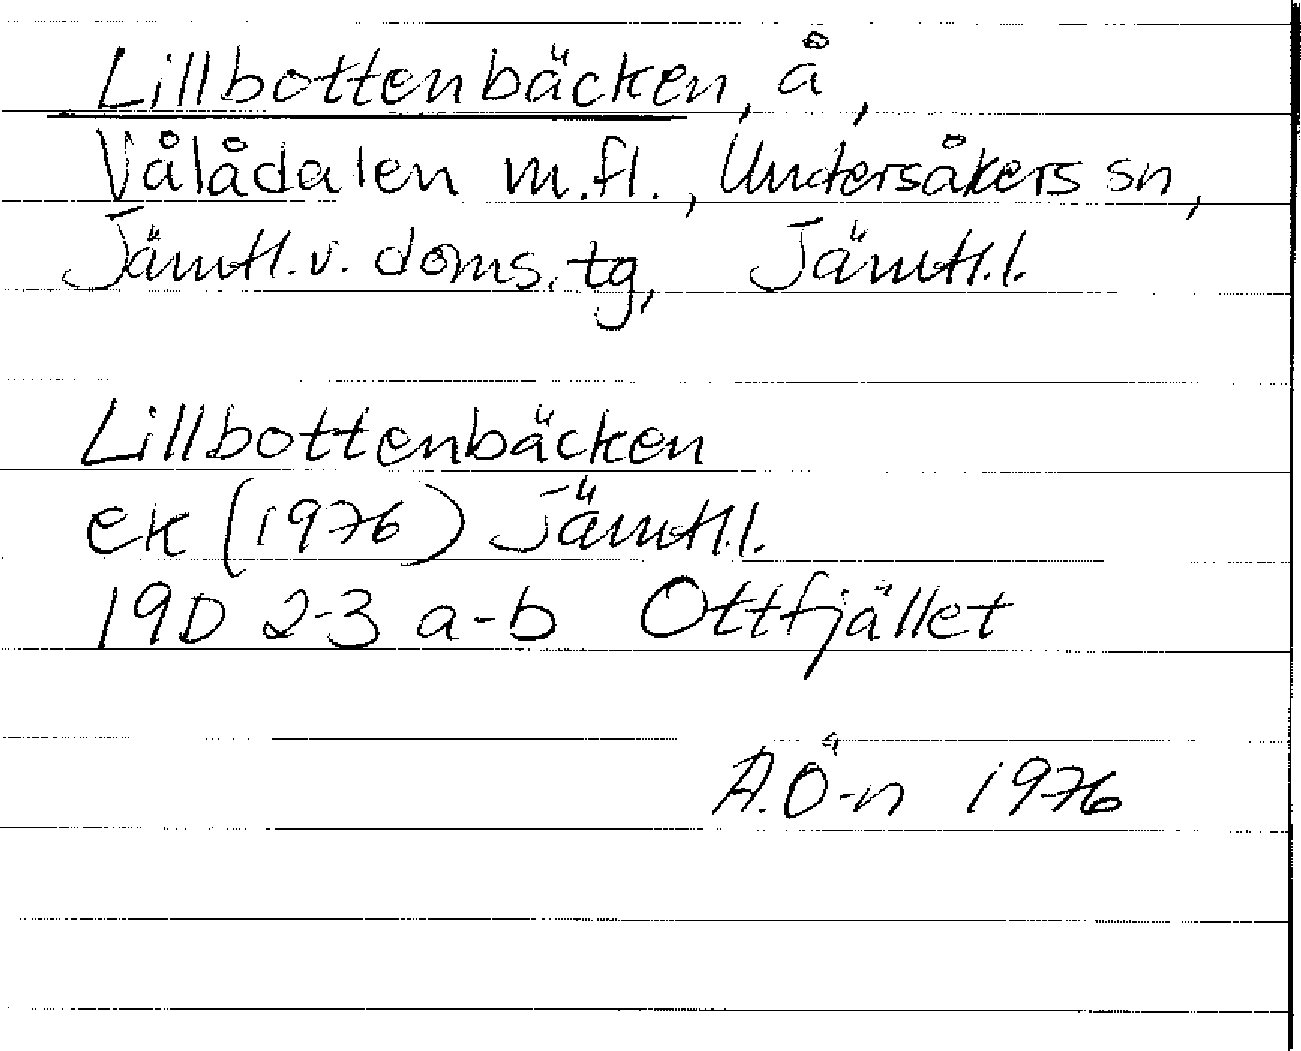 Lillbottenbäcken, å,
Vålådalen m.fl., Undersåkers sn,
Jämtl. v. doms. tg, Jämtl.l.
Lillbottenbäcken
ek (1976) Jämtl.l.
19D 2-3 a-b Ottfjället
A.Ö-n 1976